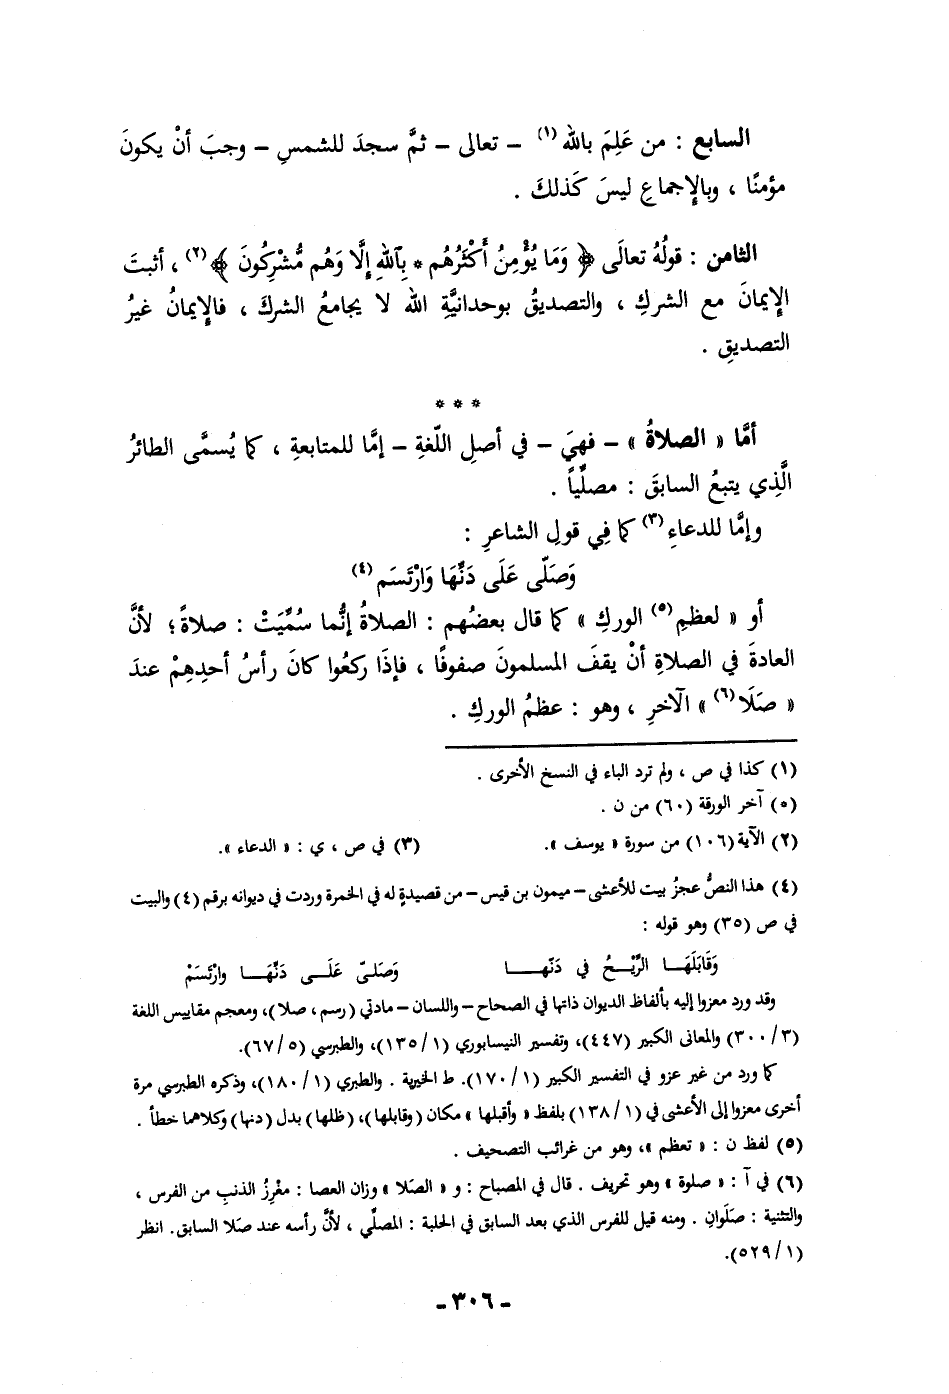 السابع : من عَلِمَ بالله (١) – تعالى – ثمَّ سجدَ للشمسِ – وجبَ أنْ يكونَ
مؤمنًا ، وبالإجماعِ ليسَ كَذلكَ .
الثامن : قولُهُ تعالَى ﴿ وَمَا يُؤْمِنُ أَكْثَرُهُم * بِٱللهِ إِلَّا وَهُم مُّشْرِكُونَ ﴾(٢) ، أثبتَ
الإيمانَ مع الشركِ ، والتصديقُ بوحدانيَّةِ الله لا يجامعُ الشركَ ، فالإيمانُ غيرُ
التصديقِ .
* * *
أمَّا « الصلاةُ » – فهيَ – في أصلِ اللّغةِ – إمَّا للمتابعةِ ، كما يُسمَّى الطائرُ
الَّذِي يتبعُ السابقَ : مصلِّياً .
وإمَّا للدعاءِ(٣) كما فِي قولِ الشاعرِ :
وَصَلّى عَلَى دَنِّهَا وَارْتَسَم (٤)
أو « لعظمِ(٥) الوركِ » كما قال بعضُهم : الصلاةُ إنُّما سُمِّيَتْ : صلاةً ؛ لأنَّ
العادةَ في الصلاةِ أنْ يقفَ المسلمونَ صفوفًا ، فإذَا ركعُوا كانَ رأسُ أحدِهِمْ عندَ
« صَلَا(٦) » الآخرِ ، وهو : عظمُ الوركِ .
(١) كذا في ص ، ولم ترد الباء في النسخ الأخرى .
(٥) آخر الورقة (٦٠) من ن .
(٢) الآية (١٠٦) من سورة « يوسف ». (٣) في ص ، ي : « الدعاء ».
(٤) هذا النصُّ عجزُ بيت للأعشى – ميمون بن قيس – من قصيدةٍ له في الخمرة وردت في ديوانه برقم (٤) والبيت
في ص (٣٥) وهو قوله :
وَقَابَلَهَـا الرِّيْـحُ في دَنّهـا وَصَلىّ عَلَـى دَنِّهَـا وارْتَسَمْ
وقد ورد معزوا إليه بألفاظ الديوان ذاتها في الصحاح – واللسان – مادتي (رسم ، صلا)، ومعجم مقاييس اللغة
(٣/ ٣٠٠) والمعانى الكبير (٤٤٧)، وتفسير النيسابوري (١/ ١٣٥)، والطبرسي (٥/ ٦٧).
كما ورد من غير عزو في التفسير الكبير (١/ ١٧٠). ط الخيرية . والطبري (١/ ١٨٠)، وذكره الطبرسي مرة
أخرى معزوا إلى الأعشى في (١/ ١٣٨) بلفظ « وأقبلها » مكان (وقابلها)، (ظلها) بدل (دنها) وكلاهما خطأ .
(٥) لفظ ن : « تعظم »، وهو من غرائب التصحيف .
(٦) في آ : « صلوة » وهو تحريف . قال في المصباح : و « الصَلا » وزان العصا : مغْرِزُ الذنبِ من الفرس ،
والتثنية : صَلَوانِ . ومنه قيل للفرس الذي بعد السابق في الحلبة : المصلِّي ، لأنَّ رأسه عند صَلا السابق. انظر
(١/ ٥٢٩).
- ٣٠٦ -